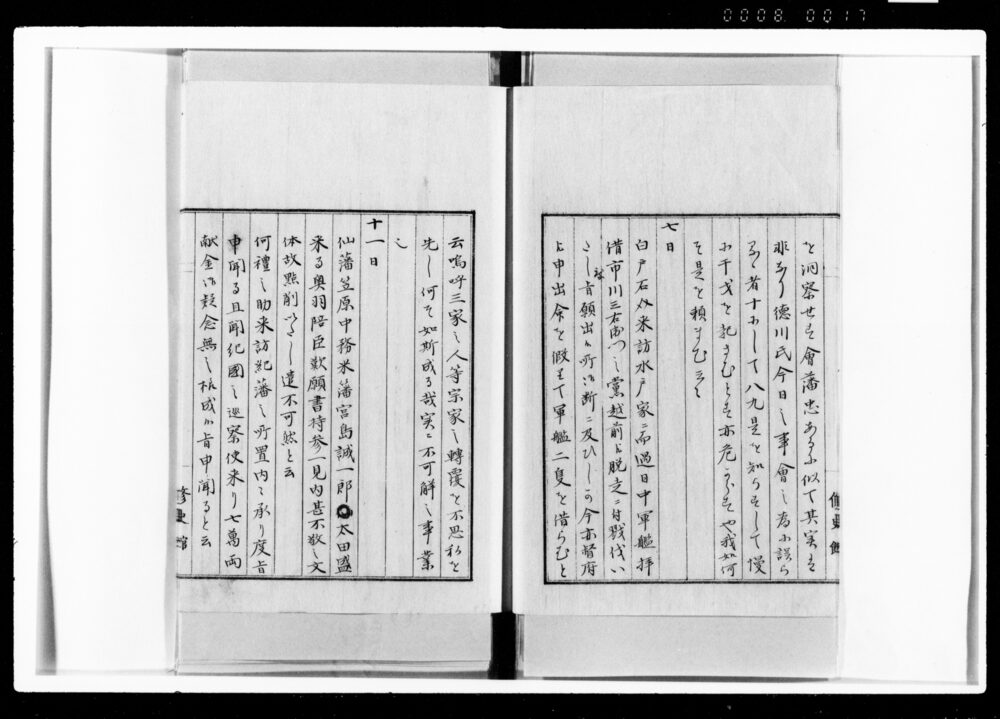 0008 0017
を洞察せす會藩忠あるに似て其実は
非なり徳川氏今日之事會之為に誤ら
るゝ者十にして八九是を知らすして慢
に干戈を起さむとす亦危からすや我如何
そ是を頼まむ云々
七日
白戸石介来訪水戸家ニ而過日中軍艦拝
借市川三右衛門之黨越前ゟ脱走ニ付戝伐い
たし度旨願出候所御断ニ及ひしか今亦督府
ゟ申出余を假りて軍艦二隻を借らむと
修史館
云嗚呼三家之人等宗家之轉覆を不思私を
先し何そ如斯成る哉実ニ不可解之事業
也
十一日
仙藩笠原中務米藩宮島誠一郎太田盛
来る奥羽陪臣歎願書持参一見内甚不敬之文
体故點削いたし遣不可然と云
何禮之助来訪紀藩之所置内々承り度旨
申聞る且聞紀國之巡察使来り七萬両
献金御疑念無之板成候旨申聞ると云
修史館